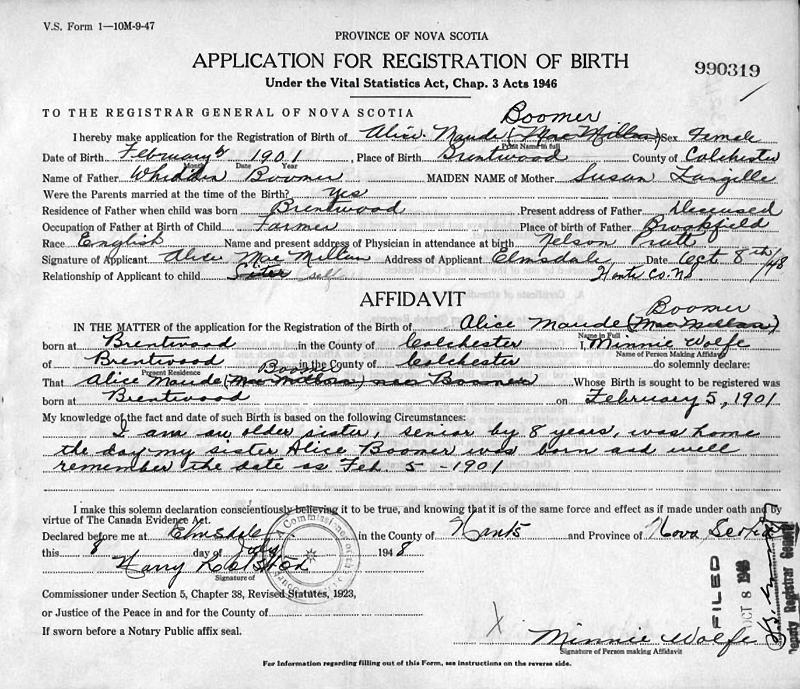 V.S. Form 1—10M-9-47
PROVINCE OF NOVA SCOTIA
APPLICATION FOR REGISTRATION OF BIRTH
990319
Under the Vital Statistics Act, Chap. 3 Acts 1946
TO THE REGISTRAR GENERAL OF NOVA SCOTIA
Boomer
I hereby make application for the Registration of Birth of Alice Maude (MacMillan) Sex Female
Print Name in full
Date of Birth February 5 1901, Place of Birth Brentwood County of Colchester
Month Date Year
Name of Father Whidden Boomer MAIDEN NAME of Mother Susan
Were the Parents married at the time of the Birth? Yes
Residence of Father when child was born Brentwood Present address of Father Deceased
Occupation of Father at Birth of Child Farmer Place of birth of Father Brookfield
Race English Name and present address of Physician in attendance at birth Nelson
Signature of Applicant Alice MacMillan Address of Applicant Elmsdale Date Oct 8th/48
Relationship of Applicant to child Sister self Hants Co. N.S.
AFFIDAVIT
Boomer
IN THE MATTER of the application for the Registration of the Birth of Alice Maude (MacMillan)
Name in Full
born at Brentwood in the County of Colchester I, Minnie Wolfe
Name of Person Making Affidavit
of Brentwood in the County of Colchester do solemnly declare:
Present Residence Boomer
That Alice Maude (MacMillan) nee Boomer Whose Birth is sought to be registered was
born at Brentwood on February 5, 1901
My knowledge of the fact and date of such Birth is based on the following Circumstances:
I am an older sister, senior by 8 years, was home
the day my sister Alice Boomer was born and well
remember the date as Feb. 5 - 1901
I make this solemn declaration conscientiously believing it to be true, and knowing that it is of the same force and effect as if made under oath and by
virtue of The Canada Evidence Act.
Declared before me at Elmsdale in the County of Hants and Province of Nova Scotia
this 8 day of 1948
Harry
Signature of
A Commissioner
Commissioner under Section 5, Chapter 38, Revised Statutes, 1923,
or Justice of the Peace in and for the County of
If sworn before a Notary Public affix seal.
FILED
OCT 8 1948
Deputy Registrar General
X Minnie Wolfe
Signature of Person making Affidavit
For Information regarding filling out of this Form, see instructions on the reverse side.